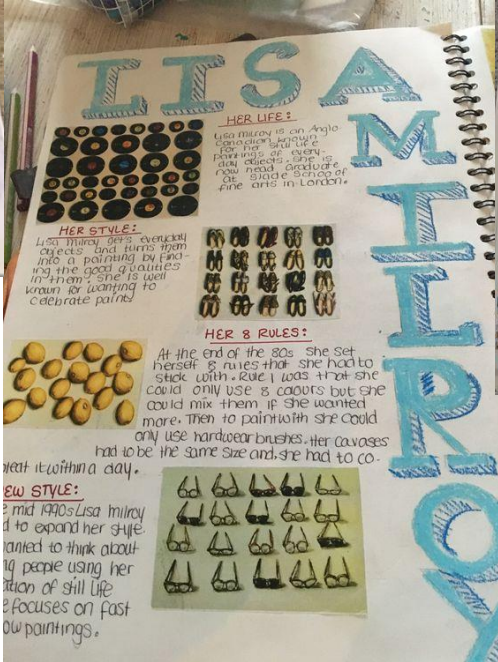 LISA
MILROY
HER LIFE:
Lisa Milroy is an Anglo-
Canadian known
for her still life
paintings of every-
day objects. She is
now head graduate
at Slade School of
fine arts in London.
HER STYLE:
Lisa Milroy gets everyday
objects and turns them
into a painting by find-
ing the good qualities
in them. She is well
known for wanting to
celebrate paint.
HER 8 RULES:
At the end of the 80s she set
herself 8 rules that she had to
stick with. Rule 1 was that she
could only use 8 colours but she
could mix them if she wanted
more. Then to paint with she could
only use hardwear brushes. Her cavases
had to be the same size and. she had to co-
pleat it within a day.
EW STYLE:
mid 1990s Lisa milroy
d to expand her style.
anted to think about
ng people using her
ation of still life
e focuses on fast
ow paintings.